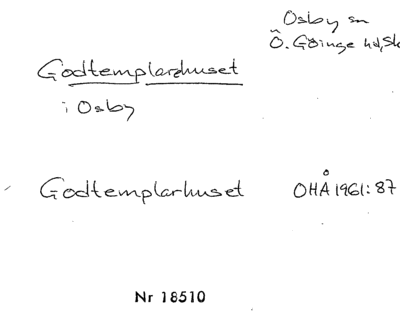 Osby sn
Ö. Göinge hd, Sk
Godtemplarehuset
i Osby
Godtemplarhuset OHÅ 1961: 87
Nr 18510